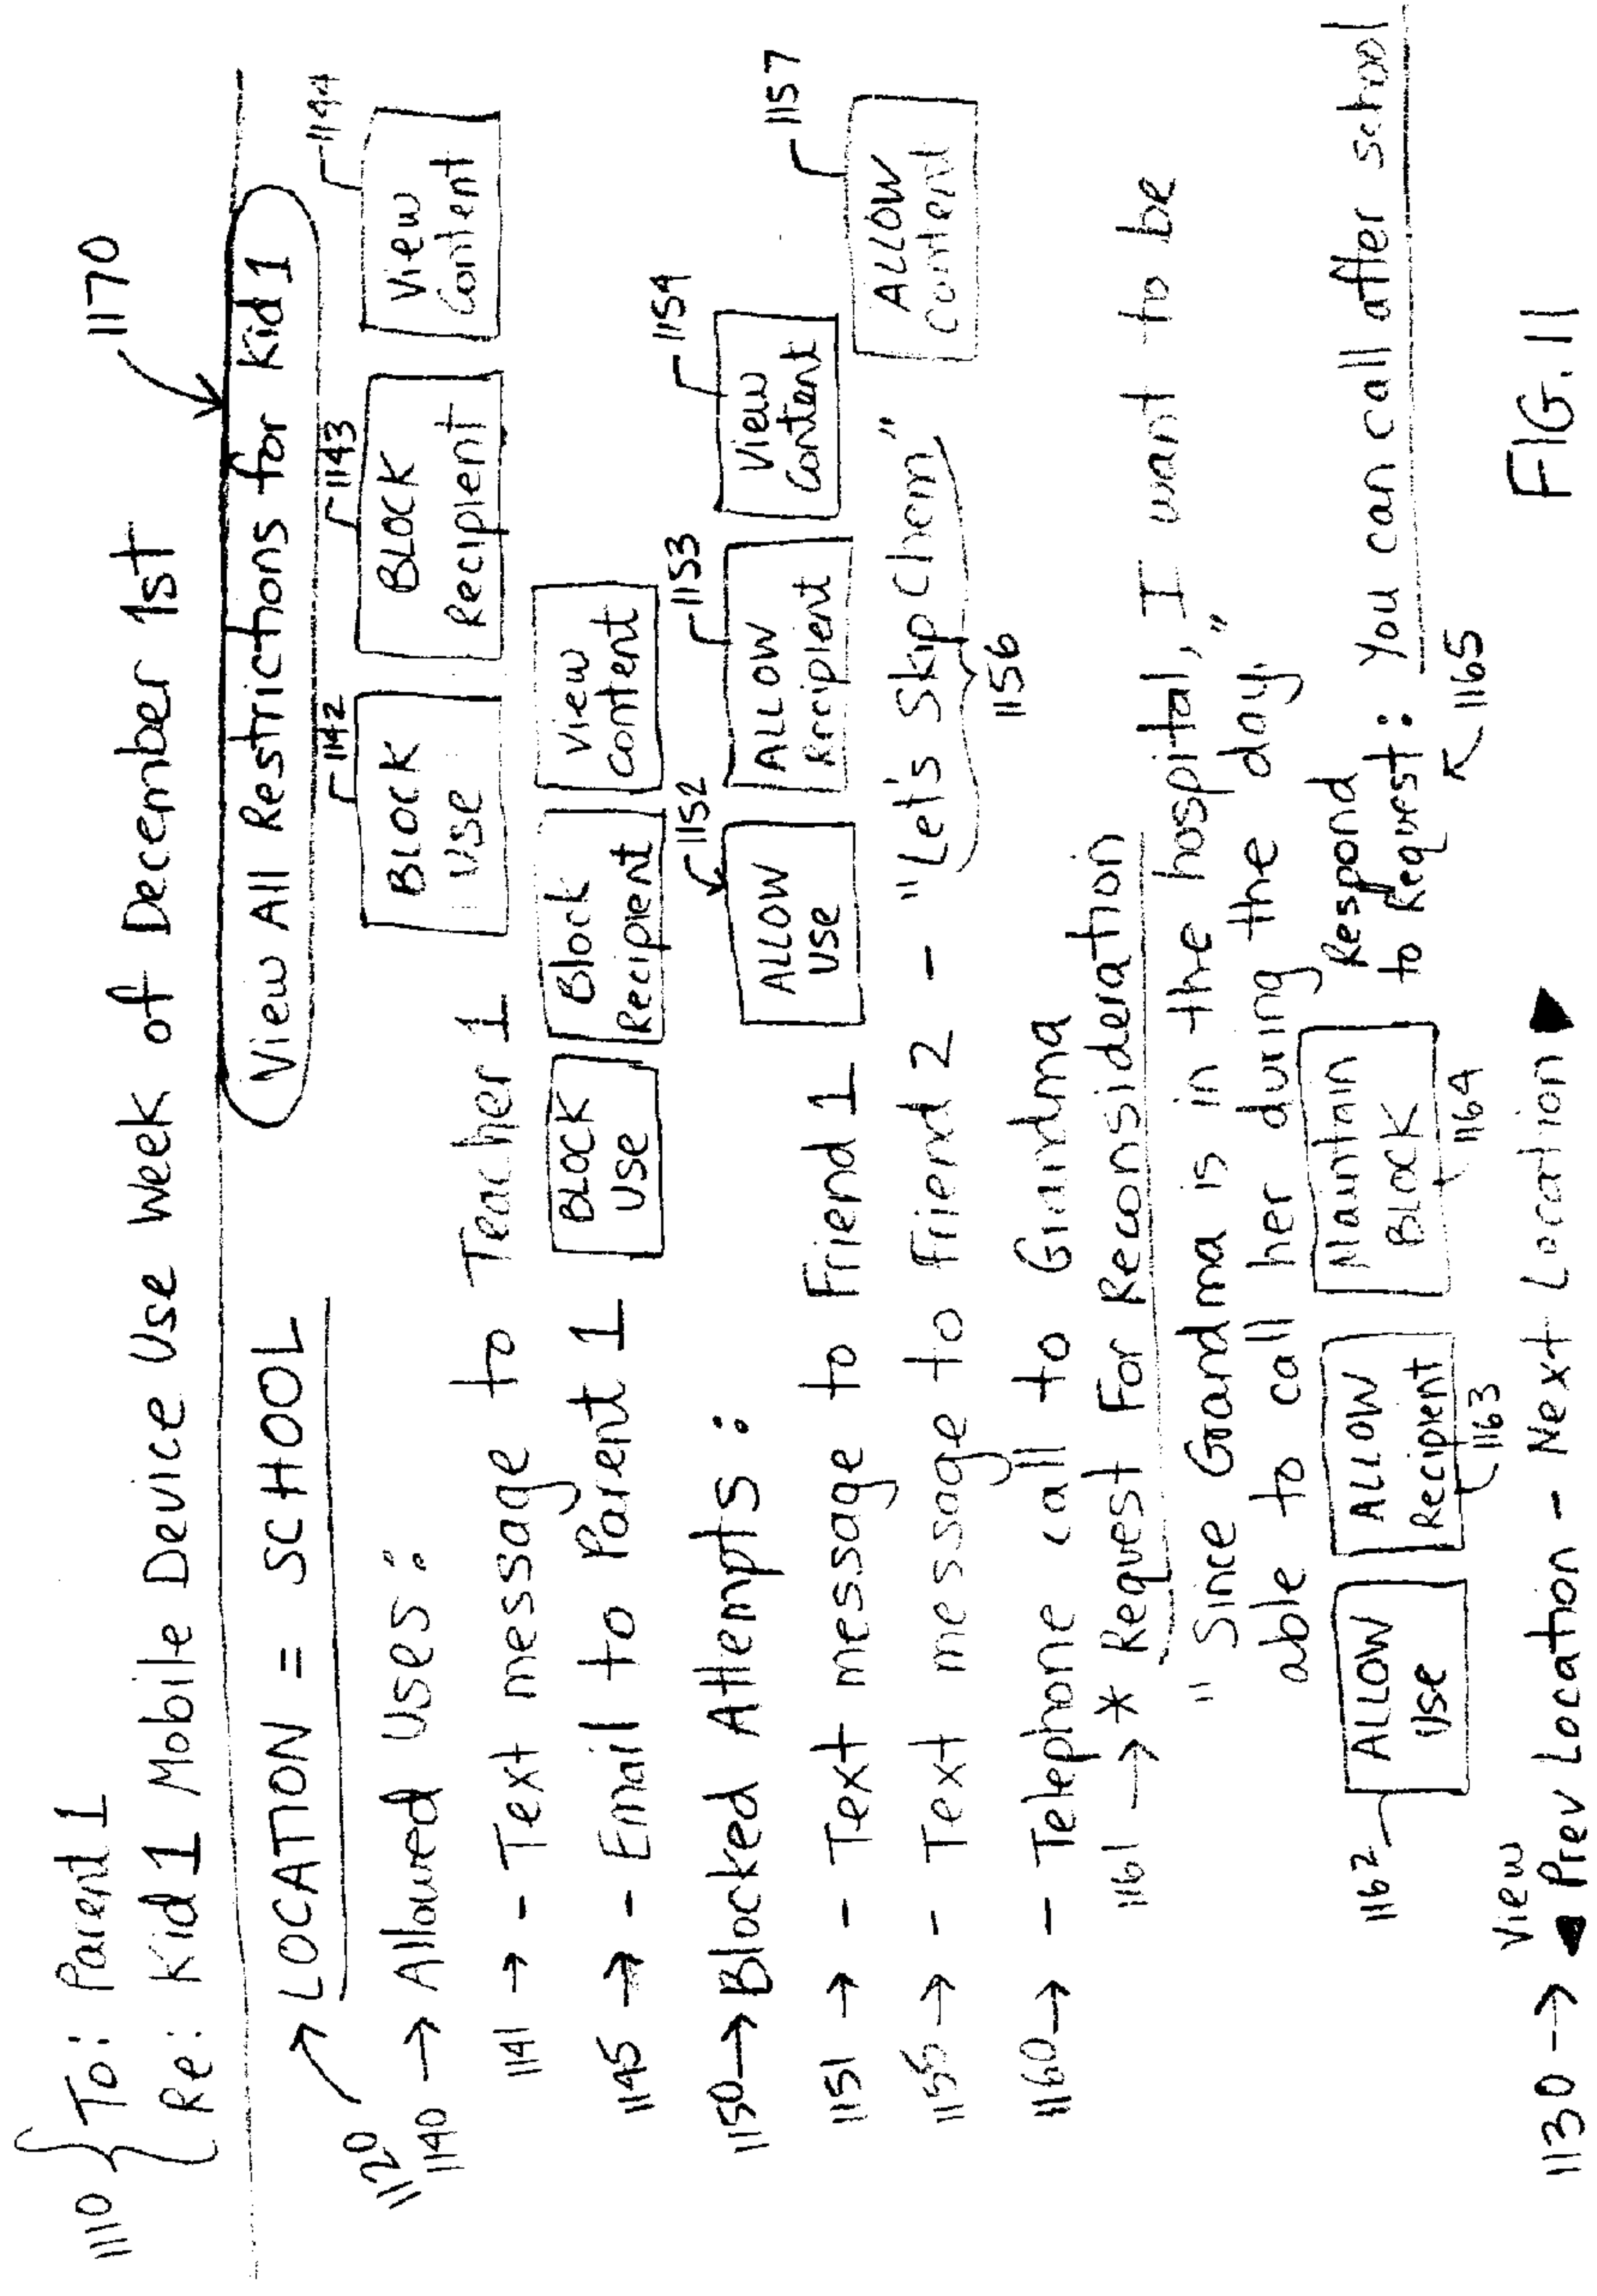 1110 { To: Parent 1
Re: Kid 1 Mobile Device Use Week of December 1st
1170
1120 LOCATION = SCHOOL
View All Restrictions for Kid 1
1140 → Allowed Uses:
1142 1143 1144
1141 → - Text message to Teacher 1 BLOCK Use BLOCK Recipient View Content
1145 → - Email to Parent 1 BLOCK Use Block Recipient View Content
1150 → Blocked Attempts:
1152 1153 1154
1151 → - Text message to Friend 1 ALLOW Use ALLOW Recipient View Content
1155 → - Text message to friend 2 - "Let's Skip Chem" ALLOW Content 1157
1156
1160 → - Telephone call to Grandma
1161 → * Request For Reconsideration
"Since Grandma is in the hospital, I want to be
able to call her during the day."
1162 ALLOW Use ALLOW Recipient Maintain BLOCK Respond to Request: You can call after school
1163 1164 1165
1130 → View ◄ Prev Location - Next Location ►
FIG. 11